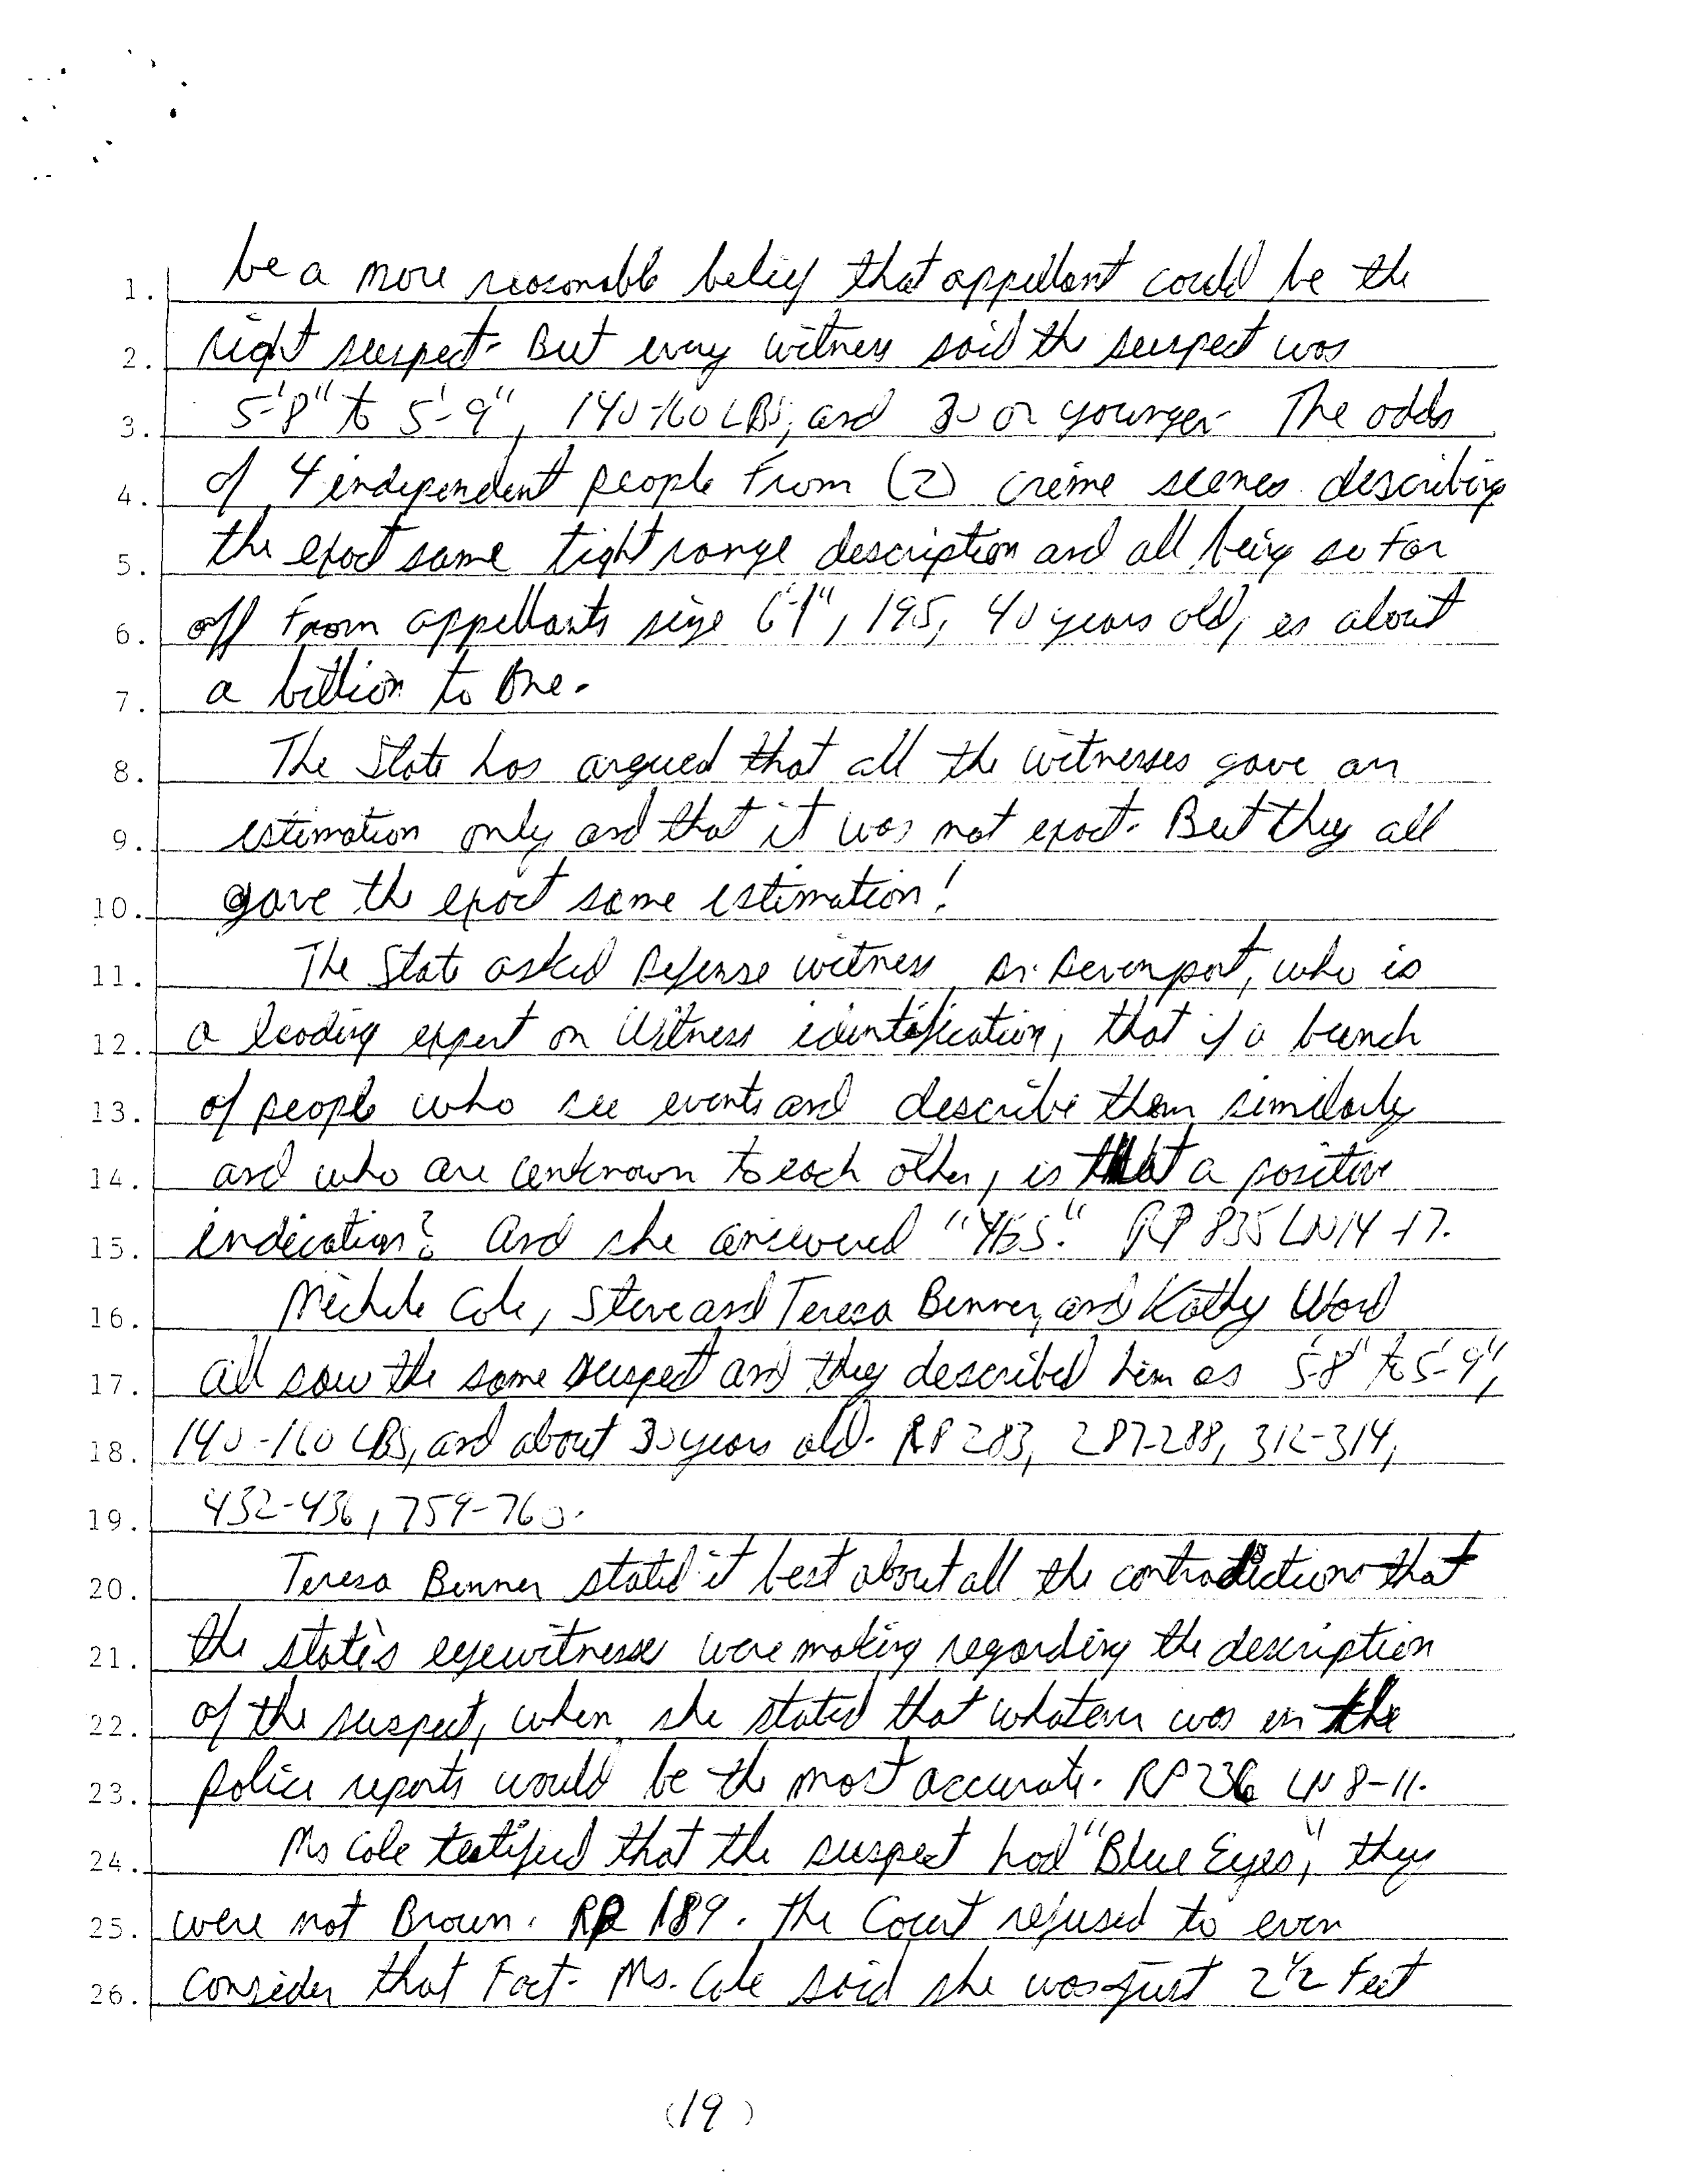 1. be a more reasonable belief that appellant could be the
2. right suspect. But every witness said the suspect was
3. 5'-8" to 5'-9", 140-160 LBS, and 30 or younger. The odds
4. of 4 independent people from (2) crime scenes describing
5. the exact same tight range description and all being so far
6. off from appellants size 6'-1", 195, 40 years old, is about
7. a billion to one.
8. The State has argued that all the witnesses gave an
9. estimation only and that it was not exact. But they all
10. gave the exact same estimation!
11. The State asked Defense witness, Dr. Devenport, who is
12. a leading expert on Witness identification, that if a bunch
13. of people who see events and describe them similarly
14. and who are unknown to each other, is that a positive
15. indication? And she answered "YES." RP 835 LN 14-17.
16. Michele Cole, Steve and Teresa Benner, and Kathy Ward
17. all saw the same suspect and they described him as 5'-8" to 5'-9",
18. 140-160 LBS, and about 30 years old. RP 283, 287-288, 312-314,
19. 432-436, 759-760.
20. Teresa Benner stated it best about all the contradictions that
21. the state's eyewitnesses were making regarding the description
22. of the suspect, when she stated that whatever was in the
23. police reports would be the most accurate. RP 236 LN 8-11.
24. Ms Cole testified that the suspect had "Blue Eyes", they
25. were not Brown. RP 189. The Court refused to even
26. consider that Fact. Ms. Cole said she was just 2 1/2 feet
(19)